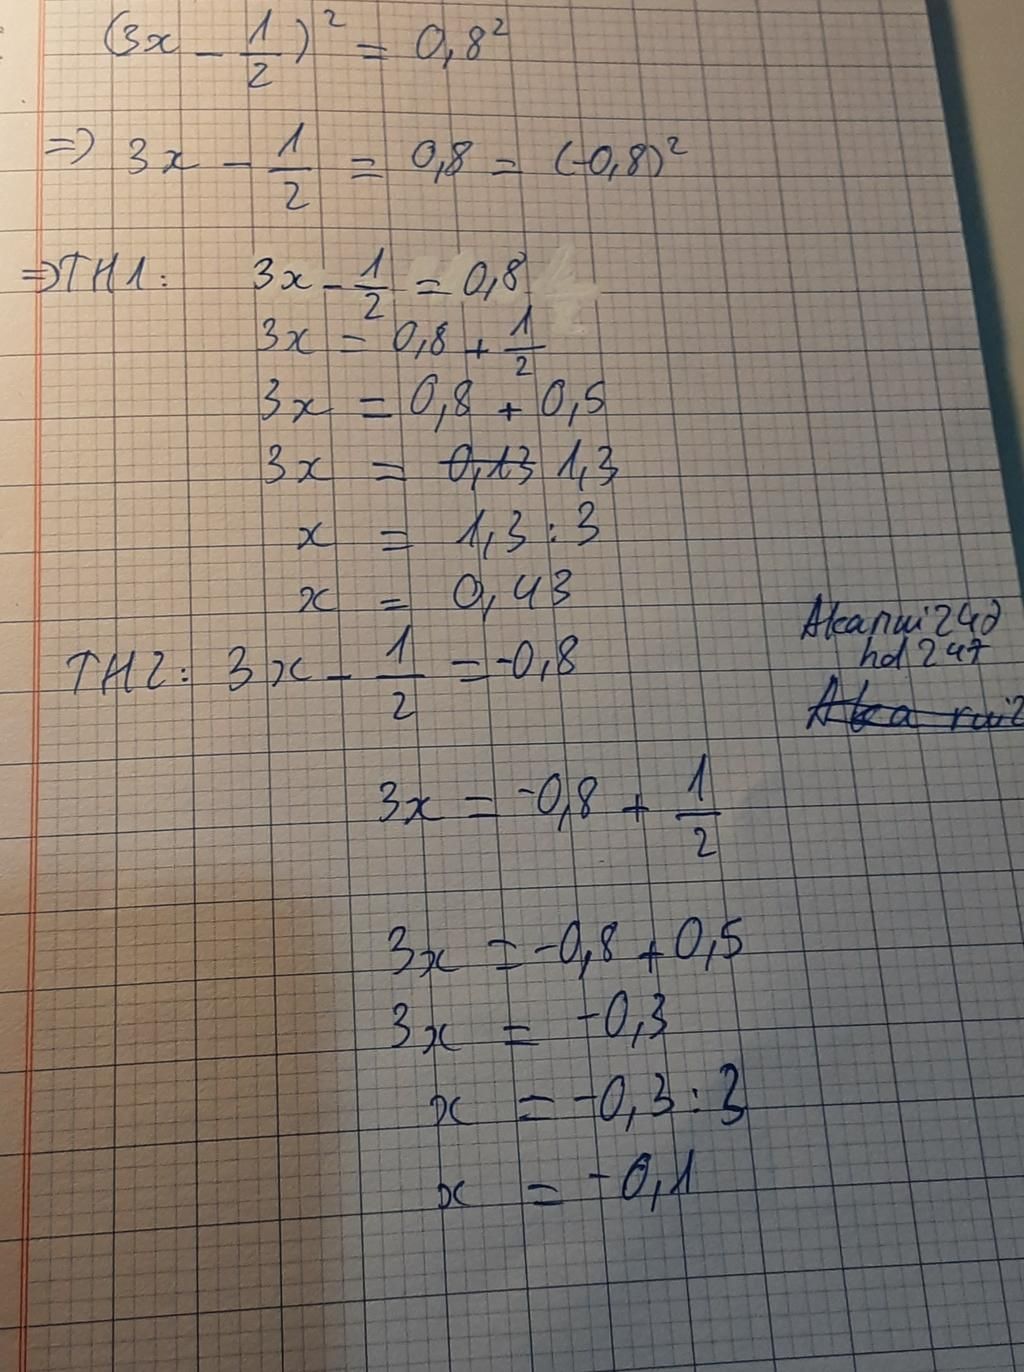 (3x - 1/2)² = 0,8²
=> 3x - 1/2 = 0,8 = (-0,8)²
=> TH1: 3x - 1/2 = 0,8
3x = 0,8 + 1/2
3x = 0,8 + 0,5
3x = 0,13 1,3
x = 1,3 : 3
x = 0,43
TH2: 3x - 1/2 = -0,8
hd247
3x = -0,8 + 1/2
3x = -0,8 + 0,5
3x = -0,3
x = -0,3 : 3
x = -0,1